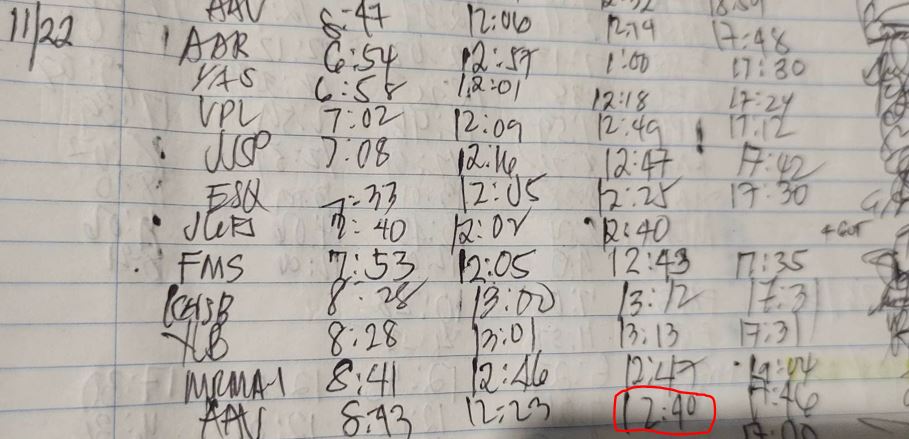 AAV 8:47 12:06
11/22 ADR 6:54 12:57 12:19 17:48
YAS 6:58 12:01 1:00 17:30
VPL 7:02 12:09 12:18 17:24
JUSP 7:08 12:16 12:49 17:12
ESQ 7:33 12:05 12:47 17:42
12:25 17:30
7:40 12:02 12:40
FMS 7:53 12:05 12:43 17:35
8:28 13:00 13:12 17:31
YLB 8:28 13:01 13:13 17:31
MRMA-1 8:41 12:46 12:47 19:04
AAV 8:43 12:23 12:40 17:46